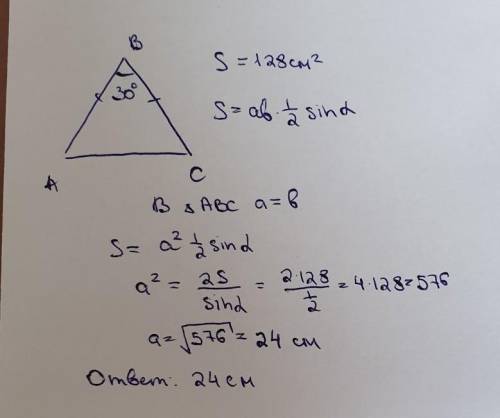 B
30°
A
C
S = 128 см²
S = ab · 1/2 sinα
В △ABC a = b
S = a² 1/2 sinα
a² = 2S/sinα = 2·128/(1/2) = 4·128 = 576
a = √576 = 24 см
Ответ: 24 см